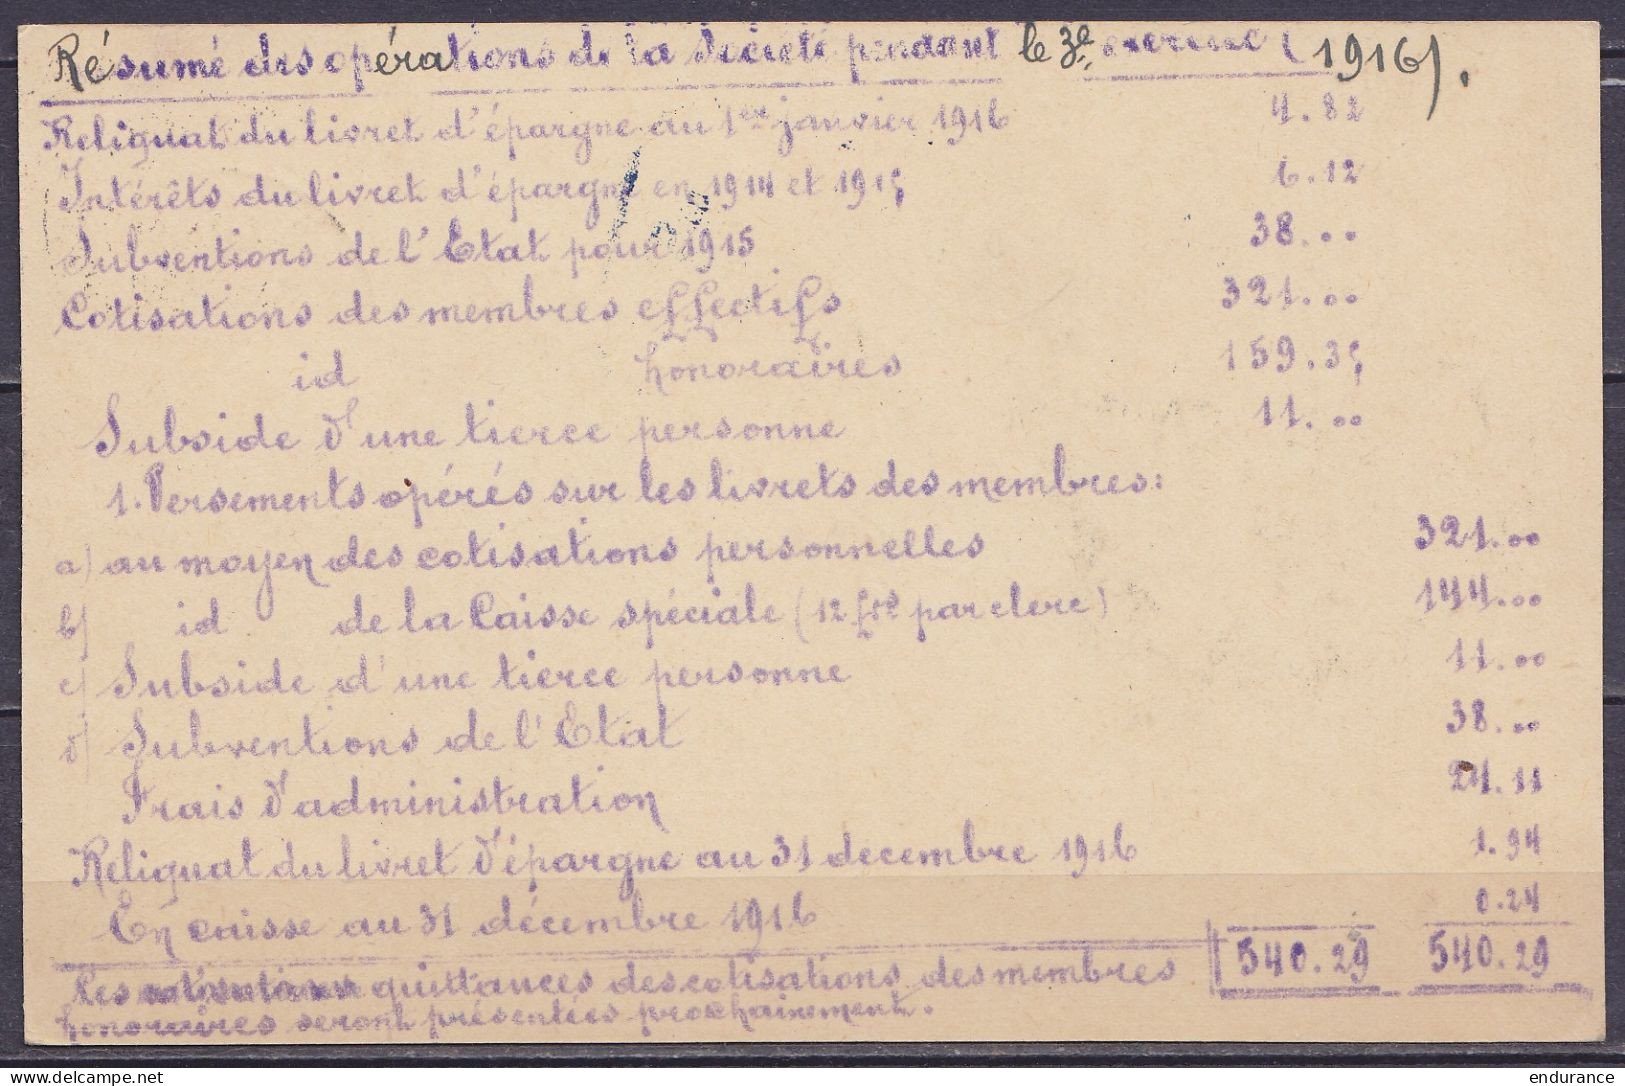 Résumé des opérations de la Société pendant le 3e exercice (1916).
Reliquat du livret d'épargne au 1er janvier 1916 4.82
Intérêts du livret d'épargne en 1914 et 1915 6.12
Subventions de l'Etat pour 1915 38.00
Cotisations des membres effectifs 321.00
id honoraires 159.35
Subside d'une tierce personne 11.00
1. Versements opérés sur les livrets des membres:
a) au moyen des cotisations personnelles 321.00
b) id de la Caisse spéciale (12 frs par clerc) 144.00
c) Subside d'une tierce personne 11.00
d) Subventions de l'Etat 38.00
Frais d'administration 24.11
Reliquat du livret d'épargne au 31 decembre 1916 1.94
En caisse au 31 décembre 1916 0.24
540.29 540.29
Les quittances des cotisations des membres
honoraires seront présentées prochainement.
delcampe.net
endurance